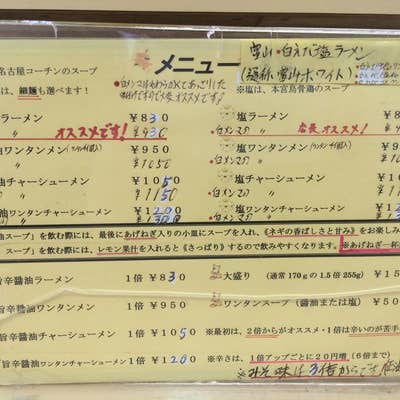 メニュー
名古屋コーチンのスープ
は、細麺も選べます!
富山・白えび塩ラーメン
(通称・富山ホワイト)
※塩は、本宮烏骨鶏のスープ
油ラーメン ¥830
オススメです! ¥930
油ワンタンメン ¥950
〃 ¥1050
油チャーシューメン ¥1050
〃 ¥1150
油ワンタンチャーシューメン ¥1200
〃
塩ラーメン
店長オススメ!
塩ワンタンメン
塩チャーシューメン
塩ワンタンチャーシューメン
油スープ」を飲む際には、最後にあげねぎ入りの小皿にスープを入れ、《ネギの香ばしさと甘み》をお楽しみ
スープ」を飲む際には、レモン果汁を入れると《さっぱり》するので飲みやすくなります。 ※あげねぎ一杯
旨辛醤油ラーメン 1倍 ¥830
旨辛醤油ワンタンメン 1倍 ¥950
旨辛醤油チャーシューメン 1倍 ¥1050
旨辛醤油ワンタンチャーシューメン 1倍 ¥1200
大盛り (通常170gの1.5倍 255g) ¥15
ワンタンスープ (醤油または塩) ¥50
※最初は、2倍からがオススメ・1倍は辛いのが苦手
※辛さは、1倍アップごとに20円増 (6倍まで)
※みそ味は3倍からです